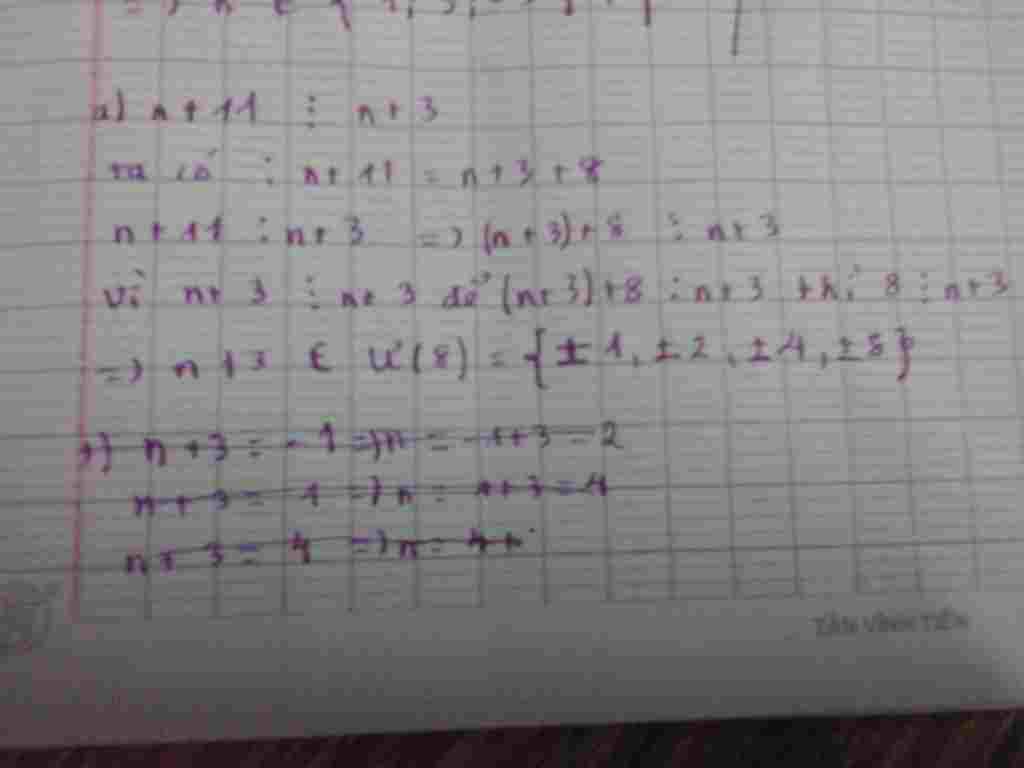 a) n + 11 ⋮ n + 3
ta có : n + 11 = n + 3 + 8
n + 11 ⋮ n + 3 => (n + 3) + 8 ⋮ n + 3
vì n + 3 ⋮ n + 3 để (n + 3) + 8 ⋮ n + 3 thì 8 ⋮ n + 3
=> n + 3 ∈ Ư(8) = {± 1, ± 2, ± 4, ± 8}
+) n + 3 = - 1 => n = -1 + 3 = 2
n + 3 = 1 => n = 1 + 3 = 4
n + 3 = 4 => n = 4 +
TÂN VĨNH TIẾN